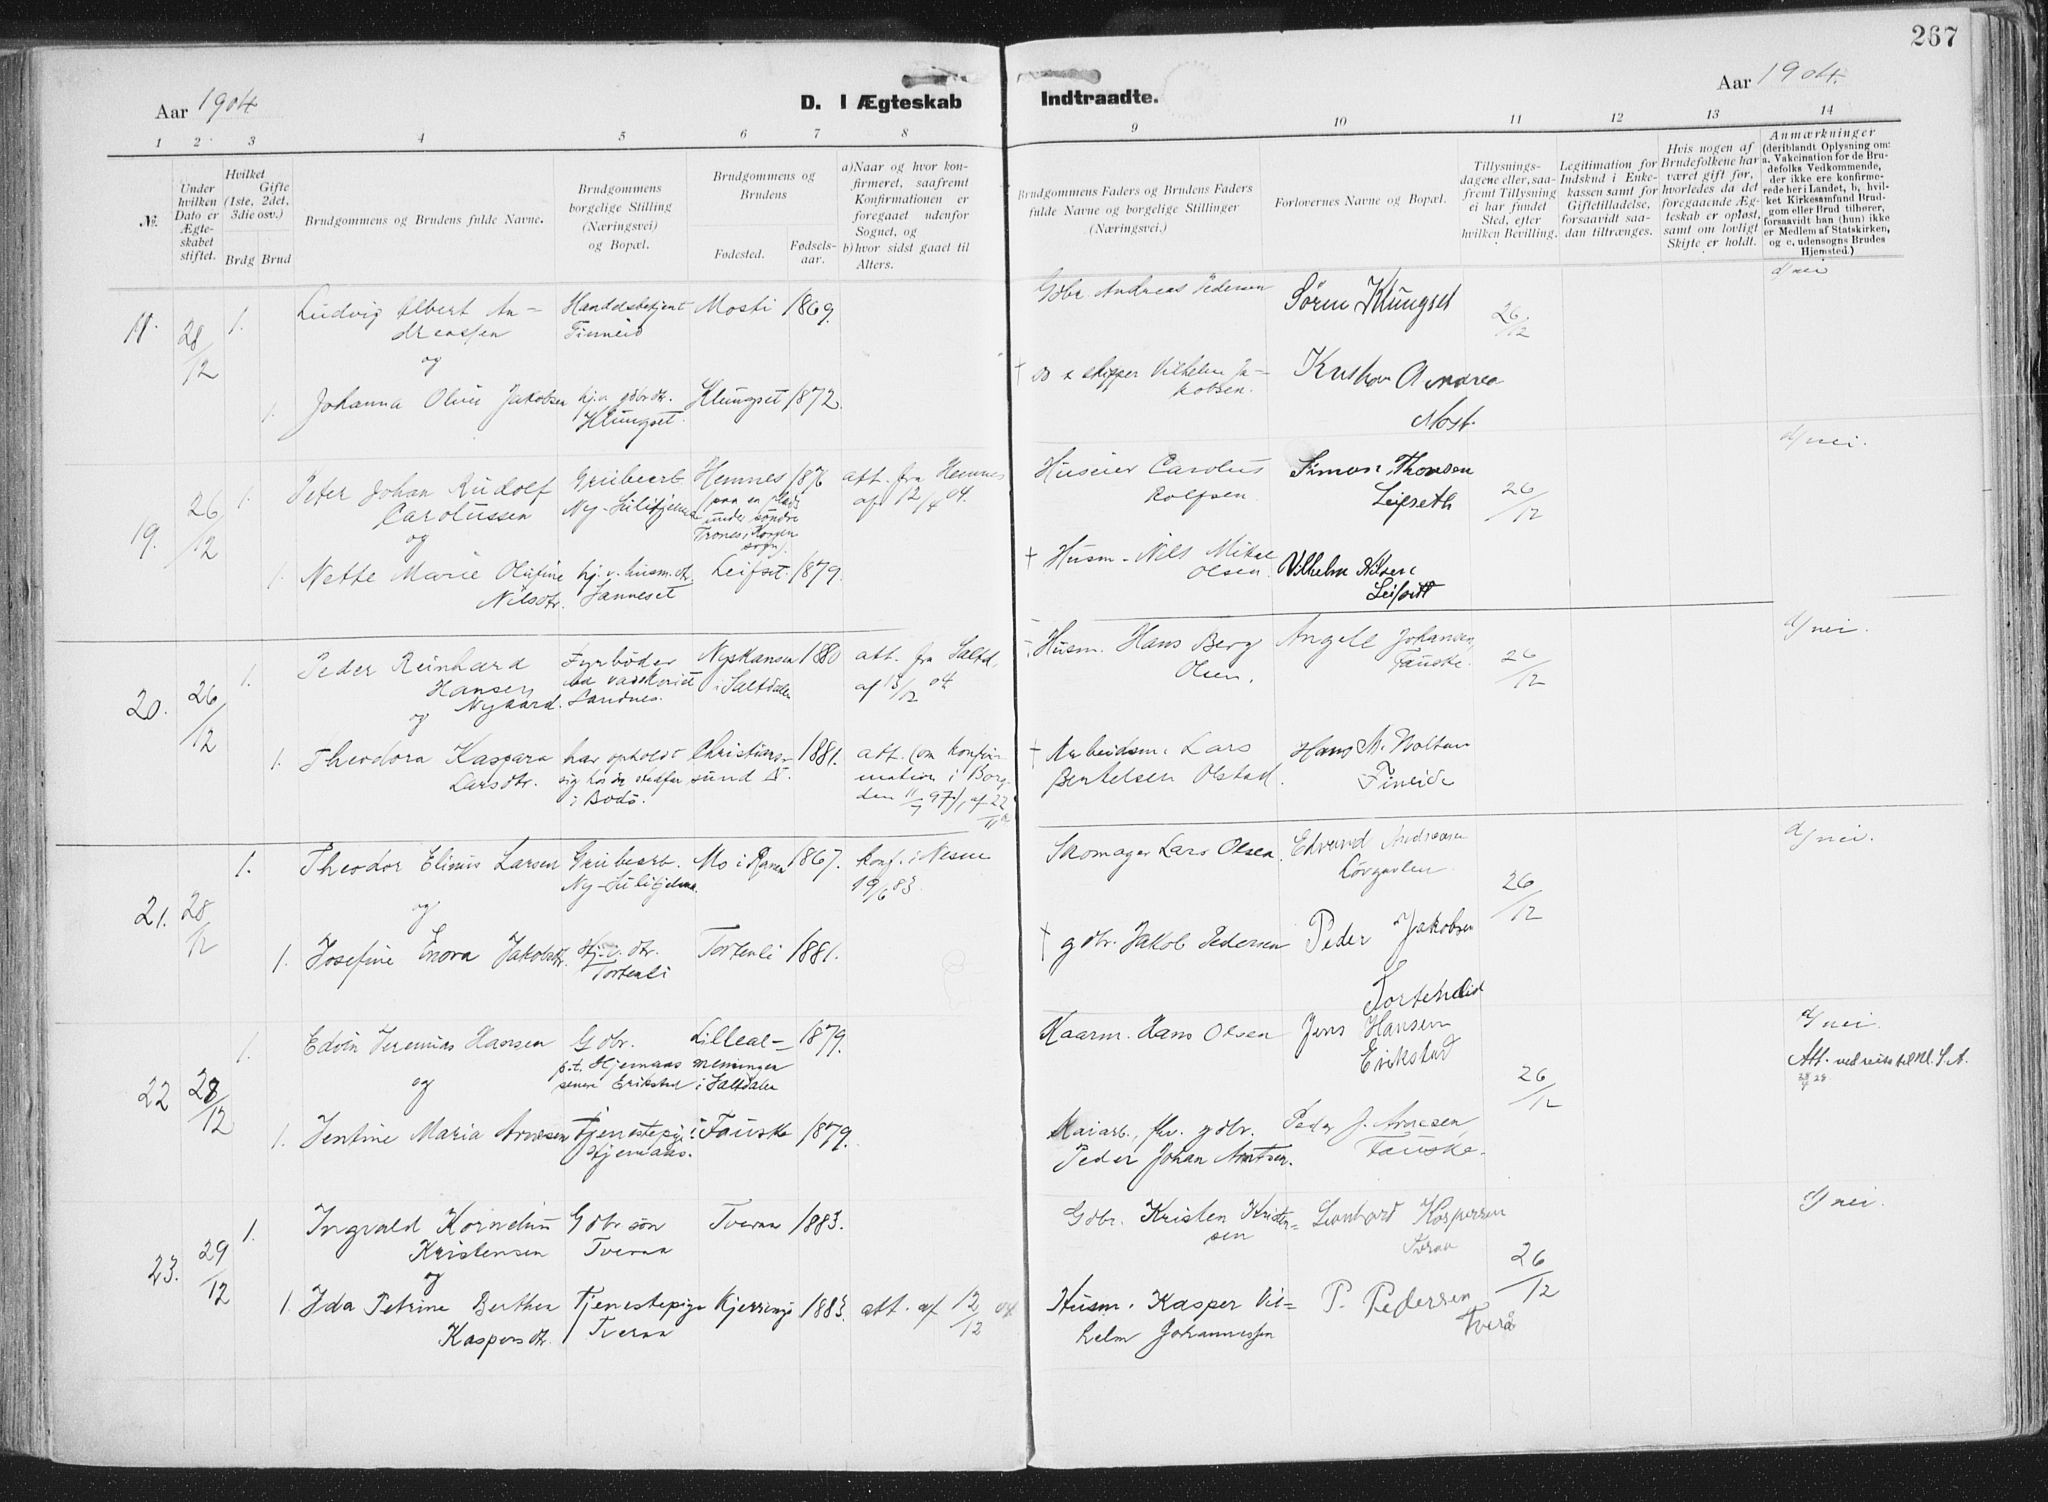 267
Aar 1904
D. I Ægteskab
Indtraadte.
Aar 1904.
1 2 3 4 5 6 7 8
9 10 11 12 13 14
№.
Under
hvilken
Dato er
Ægte-
skabet
stiftet.
Hvilket
Gifte
(1ste, 2det,
3die osv.)
Brdg Brud
Brudgommens og Brudens fulde Navne.
Brudgommens
borgelige Stilling
(Næringsvei)
og Bopæl.
Brudgommens og
Brudens
Fødested.
Fødsels-
aar.
a) Naar og hvor kon-
firmeret, saafremt
Konfirmationen er
foregaaet udenfor
Sognet, og
b) hvor sidst gaaet til
Alters.
Brudgommens Faders og Brudens Faders
fulde Navne og borgelige Stillinger
(Næringsvei.)
Forlovernes Navne og Bopæl.
Tillysnings-
dagene eller, saa-
fremt Tillysning
ei har fundet
Sted, efter
hvilken Bevilling.
Legitimation for
Indskud i Enke-
kassen samt for
Giftetilladelse,
forsaavidt saa-
dan tiltrænges.
Hvis nogen af
Brudefolkene har
været gift før,
hvorledes da det
foregaaende Æg-
teskab er opløst,
samt om lovligt
Skifte er holdt.
Anmærkninger
(deriblandt Oplysning om:
a. Vakcination for de Bru-
defolks Vedkommende,
der ikke ere konfirme-
rede her i Landet, b, hvil-
ket Kirkesamfund Brud-
gom eller Brud tilhører,
forsaavidt han (hun) ikke
er Medlem af Statskirken,
og c, udensogns Brudes
Hjemsted.)
28/12 1. Ludvig Albert An-
dreassen
Handelsbetjent
Finneid
Mosti 1869.
Gdbr. Andreas Pedersen
Sören Klungset
26/12
d/ nei
og
1. Johanna Olive Jakobsen
hj.v. gdbr dtr.
Klungset.
Klungset 1872.
skipper Vilhelm Ja-
kobsen.
Andrea
19. 26/12 1. Peter Johan Rudolf
Carolussen
Grubearb.
Ny-Sulitjelma
Hemnes 1876
(paa en plads
under søndre
Trones i Korgen
sogn).
att. fra Hemnes
af 12/4 04.
Huseier Carolus
Rolfsen.
Simon Thonsen
Leifseth
26/12
d/ nei.
og
1. Nette Marie Olufine
Nilsdtr.
hj. v. husm. dtr.
Leifset. 1879.
† Husm. Nils Mikal
Olsen.
Vilhelm Nilsen
20. 26/12 1. Peder Reinhard
Hansen
Nygaard.
Fyrbøder
Sandnes.
Nyskansen 1880
i Saltdalen
att. fra Saltd.
af 13/12 04.
Husm. Hans Berg
Olsen.
Angell Johansen,
Fauske.
26/12
d/ nei.
og
1. Theodora Kaspara
Larsdtr.
har opholdt
i Bodø.
Christians-
sund N. 1881.
att. (om konfir-
mation i Borg
den 11/7 97), af 22/11
† Arbeidsm. Lars
Bertelsen Olstad.
Hans M. Holtan
Fineide
21. 28/12 1. Theodor Elinus Larsen
Grubearb.
Ny-Sulitjelma.
Mo i Ranen 1867.
konf. i Nesne
19/6 83.
Skomager Lars Olsen.
Edvard Andreasen
26/12
d/ nei.
og
1. Josefine Enora Jakobsdtr.
hj. v. dtr.
Tortenli
Tortenli 1881.
† gdbr. Jakob Pedersen
Peder Jakobsen
22 28/12 1. Edvin Jeremias Hansen
Gdbr.
p.t. Hjemaas
senere Erikstad
Lilleal-
menningen
i Saltdalen
1879.
Kaarm. Hans Olsen
Jens Hansen
Erikstad
26/12
d/ nei.
Att. ved reise til Nl. S. A.
og
1. Jentine Maria Arnesen
Tjenestepige
Hjemaas.
Fauske 1879.
Kaiarb., fhv. gdbr.
Peder Johan Arntsen.
Peder J. Arnesen,
Fauske.
23. 29/12 1. Ingvald Kornelius
Kristensen
Gdbr. søn
Tveraa
Tveraa 1883.
Gdbr. Kristen Kristen-
sen
Leonhard Kaspersen
Tveraa
26/12
d/ nei.
og
1. Ida Petrine Berthea
Kaspersdtr.
Tjenestepige
Tveraa
Kjerringø 1883.
att. af 12/12 04
Husm. Kasper Vil-
helm Johannessen
P. Pedersen
Tverå